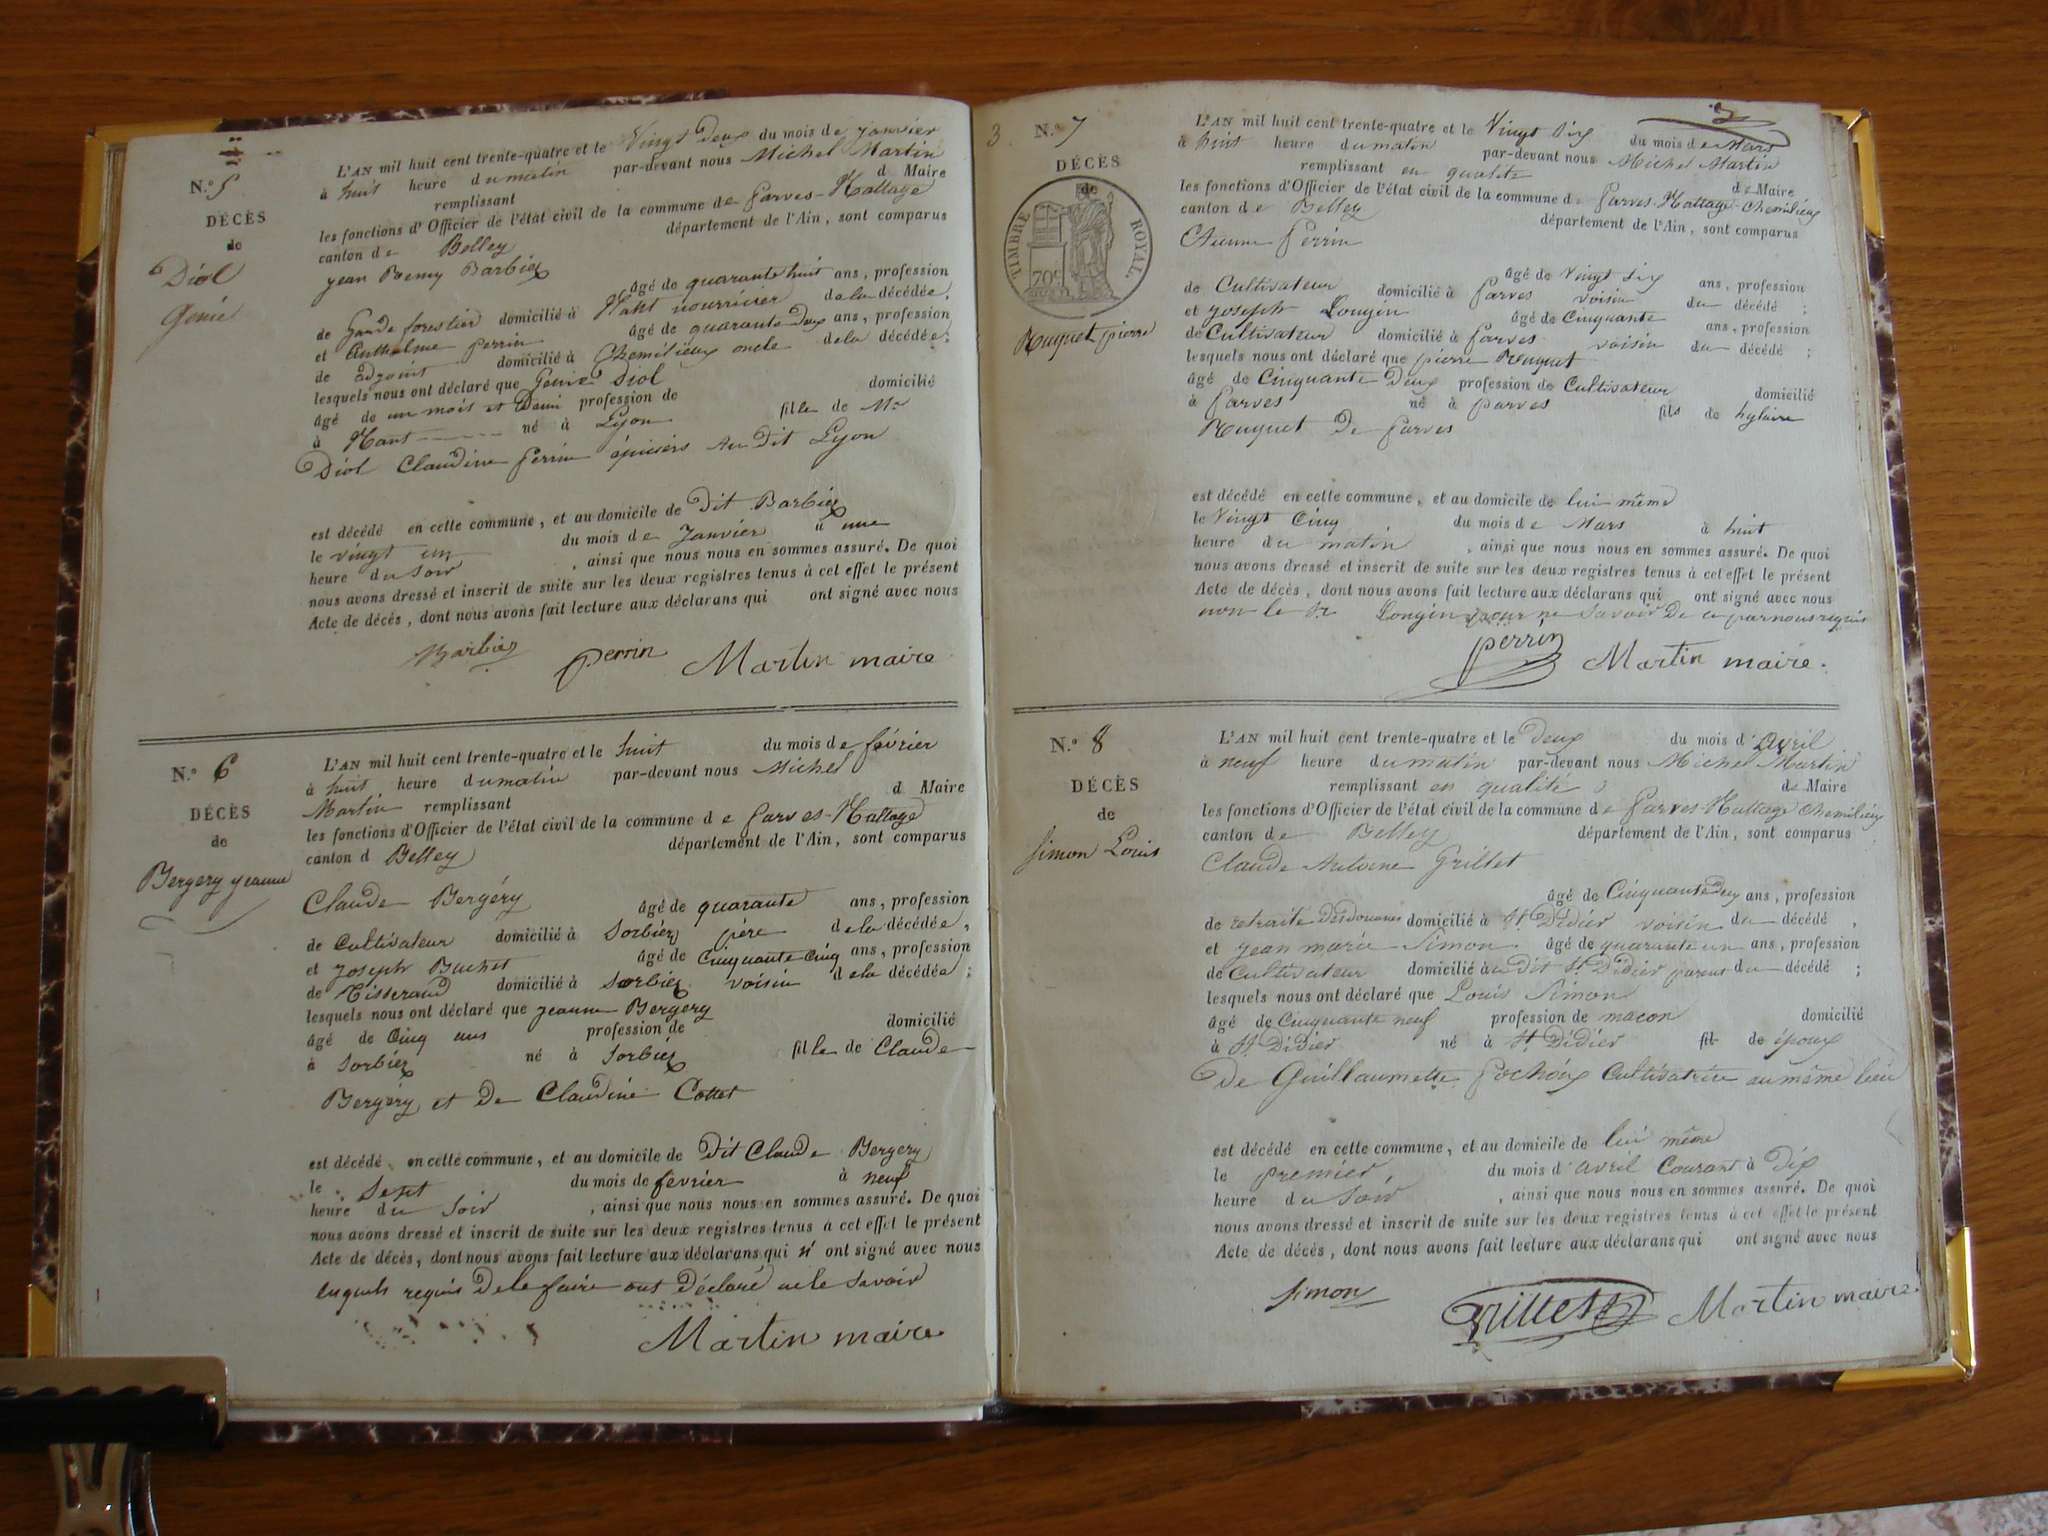 N.º 5
DÉCÈS
de
Diol
Génie
L'AN mil huit cent trente-quatre et le Vingt Deux du mois de janvier
à huit heure du matin par-devant nous Michel Martin
remplissant d Maire
les fonctions d'Officier de l'état civil de la commune de Parves-Nattage
canton de Belley département de l'Ain, sont comparus
jean Remy Barbier
âgé de quarante huit ans, profession
de Garde forestier domicilié à Nant nourricier de la décédée,
et Anthelme perrin âgé de quarante Deux ans, profession
de adjoint domicilié à Chemilieux oncle de la décédée;
lesquels nous ont déclaré que Genie Diol
âgé de un mois et Demi profession de domicilié
à Nant né à Lyon fille de Mr
Diol Claudine Perrin Au Dit Lyon
est décédé en cette commune, et au domicile de Dit Barbier
le vingt un du mois de Janvier à une
heure du Soir , ainsi que nous nous en sommes assuré. De quoi
nous avons dressé et inscrit de suite sur les deux registres tenus à cet effet le présent
Acte de décès, dont nous avons fait lecture aux déclarans qui ont signé avec nous
Barbier perrin Martin maire
N.º 6
DÉCÈS
de
Bergery jeanne
L'AN mil huit cent trente-quatre et le huit du mois de février
à huit heure du matin par-devant nous Michel
Martin remplissant d Maire
les fonctions d'Officier de l'état civil de la commune de Parves-Nattage
canton d Belley département de l'Ain, sont comparus
Claude Bergéry âgé de quarante ans, profession
de Cultivateur domicilié à Sorbier père de la décédée,
et joseph Buchet âgé de Cinquante Cinq ans, profession
de Tisserand domicilié à Sorbier voisin de la décédée;
lesquels nous ont déclaré que jeanne Bergery
âgé de Cinq ans profession de domicilié
à Sorbier né à Sorbier fille de Claude
Bergéry et De Claudine Cottet
est décédé en cette commune, et au domicile de Dit Claude Bergery
le Sept du mois de février à neuf
heure du Soir , ainsi que nous nous en sommes assuré. De quoi
nous avons dressé et inscrit de suite sur les deux registres tenus à cet effet le présent
Acte de décès, dont nous avons fait lecture aux déclarans qui n' ont signé avec nous
lequels requis De le faire ont Déclaré ne le Savoir
Martin maire
3
3
N.º 7
DÉCÈS
de
TIMBRE ROYAL
70c
Nuguet pierre
L'AN mil huit cent trente-quatre et le Vingt Six du mois de Mars
à huit heure du matin par-devant nous Michel Martin
remplissant en qualité de Maire
les fonctions d'Officier de l'état civil de la commune de Parves-Nattage-Chemilieu
canton de Belley département de l'Ain, sont comparus
Etienne Perrin
âgé de Vingt Six ans, profession
de Cultivateur domicilié à Parves voisin du décédé ;
et joseph Longin âgé de Cinquante ans, profession
de Cultivateur domicilié à Parves voisin du décédé ;
lesquels nous ont déclaré que pierre Nuguet
âgé de Cinquante Deux profession de Cultivateur domicilié
à Parves né à Parves fils de hylaire
Nuguet De Parves
est décédé en cette commune, et au domicile de lui même
le Vingt Cinq du mois de Mars à huit
heure du matin , ainsi que nous nous en sommes assuré. De quoi
nous avons dressé et inscrit de suite sur les deux registres tenus à cet effet le présent
Acte de décès, dont nous avons fait lecture aux déclarans qui ont signé avec nous
non le Sr Longin pour ne Savoir De ce par nous requis
perrin Martin maire.
N.º 8
DÉCÈS
de
Simon Louis
L'AN mil huit cent trente-quatre et le Deux du mois d' Avril
à neuf heure du matin par-devant nous Michel Martin
remplissant en qualité de Maire
les fonctions d'Officier de l'état civil de la commune de Parves-Nattage Chemilieu
canton de Belley département de l'Ain, sont comparus
Claude Antoine Grillet
âgé de Cinquante Deux ans, profession
de retraite Des Douanes domicilié à St Didier voisin du décédé ,
et jean marie Simon âgé de quarante un ans, profession
de Cultivateur domicilié à u dit St Didier parent du décédé ;
lesquels nous ont déclaré que Louis Simon
âgé de Cinquante neuf profession de macon domicilié
à St Didier né à St Didier fil de époux
De Guillaumette Pochoix Cultivatrice au même lieu
est décédé en cette commune, et au domicile de lui même
le premier du mois d' avril Courant à Dix
heure du Soir , ainsi que nous nous en sommes assuré. De quoi
nous avons dressé et inscrit de suite sur les deux registres tenus à cet effet le présent
Acte de décès, dont nous avons fait lecture aux déclarans qui ont signé avec nous
Simon Grillet Martin maire.